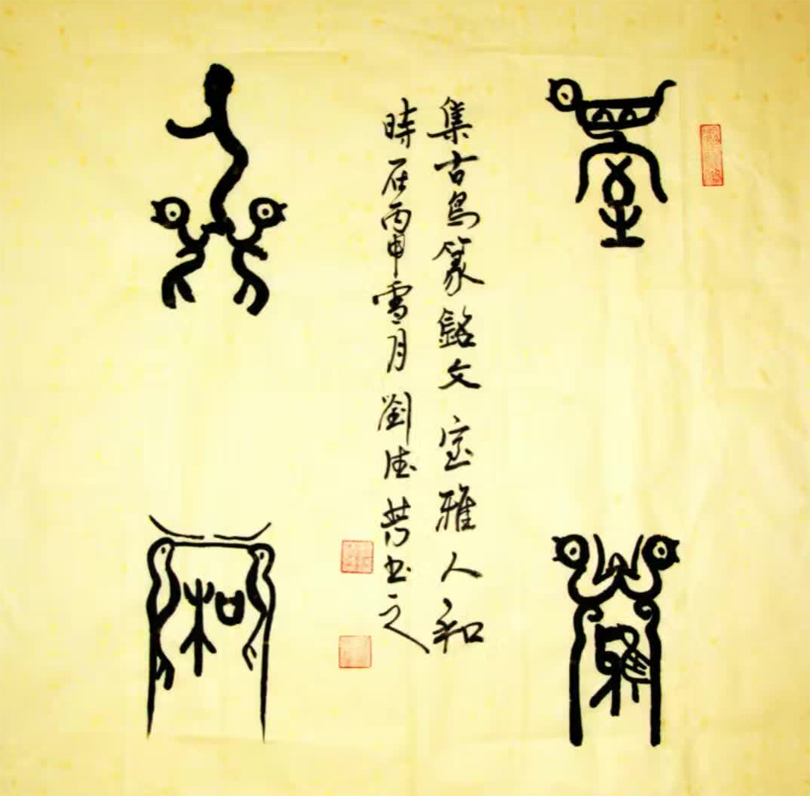 室
雅
集古鸟篆銘文室雅人和
時在丙申雪月劉德书之
人
和